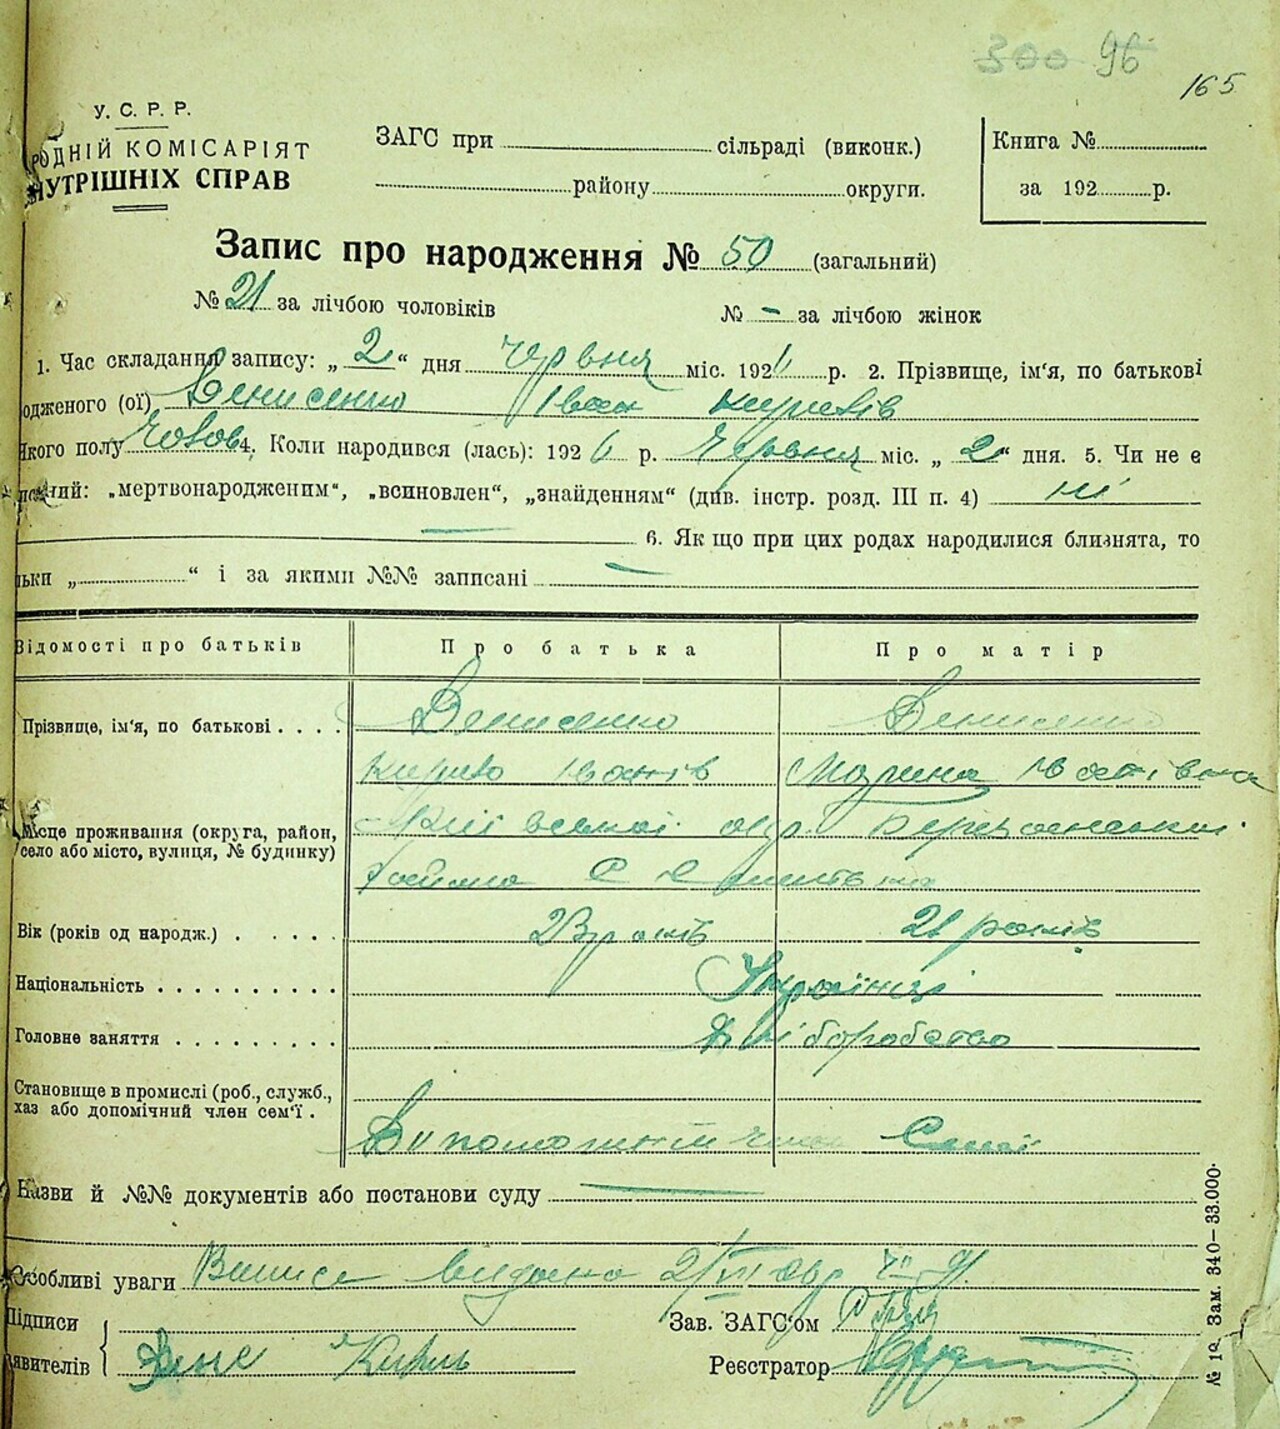 300 96
165
У. С. Р. Р.
РОДНІЙ КОМІСАРІЯТ
НУТРІШНІХ СПРАВ
ЗАГС при сільраді (виконк.)
району округи.
Книга №
за 192 р.
Запис про народження № 50 (загальний)
№ 21 за лічбою чоловіків № - за лічбою жінок
1. Час складання запису: „ 2 “ дня червня міс. 192 р. 2. Прізвище, ім'я, по батькові
одженого (ої) Денисенко Іван Кирилів
якого полу 4. Коли народився (лась): 192 6 р. Червня міс. „ 2 “ дня. 5. Чи не є
„мертвонародженим“, „всиновлен“, „знайденням“ (див. інстр. розд. III п. 4) ні
6. Як що при цих родах народилися близнята, то
льки „ “ і за якими №№ записані
Відомості про батьків Про батька Про матір
Прізвище, ім'я, по батькові Денисенко Денисенко
Кирило Іванів Марина Іванівна
Місце проживання (округа, район, село або місто, вулиця, № будинку) Київської окр. Березанський
района С
Вік (років од народж.) 23 років 21 років
Національність Українці
Головне заняття Хліборобство
Становище в промислі (роб., служб.,
хаз або допомічний член сем'ї .
Допоможний член Сімї
Назви й №№ документів або постанови суду
Особливі уваги Випись видана 2/VI
Підписи
явителів Дене Кирил
Зав. ЗАГС'ом
Реєстратор
№ 19 Зам. 340—33.000.